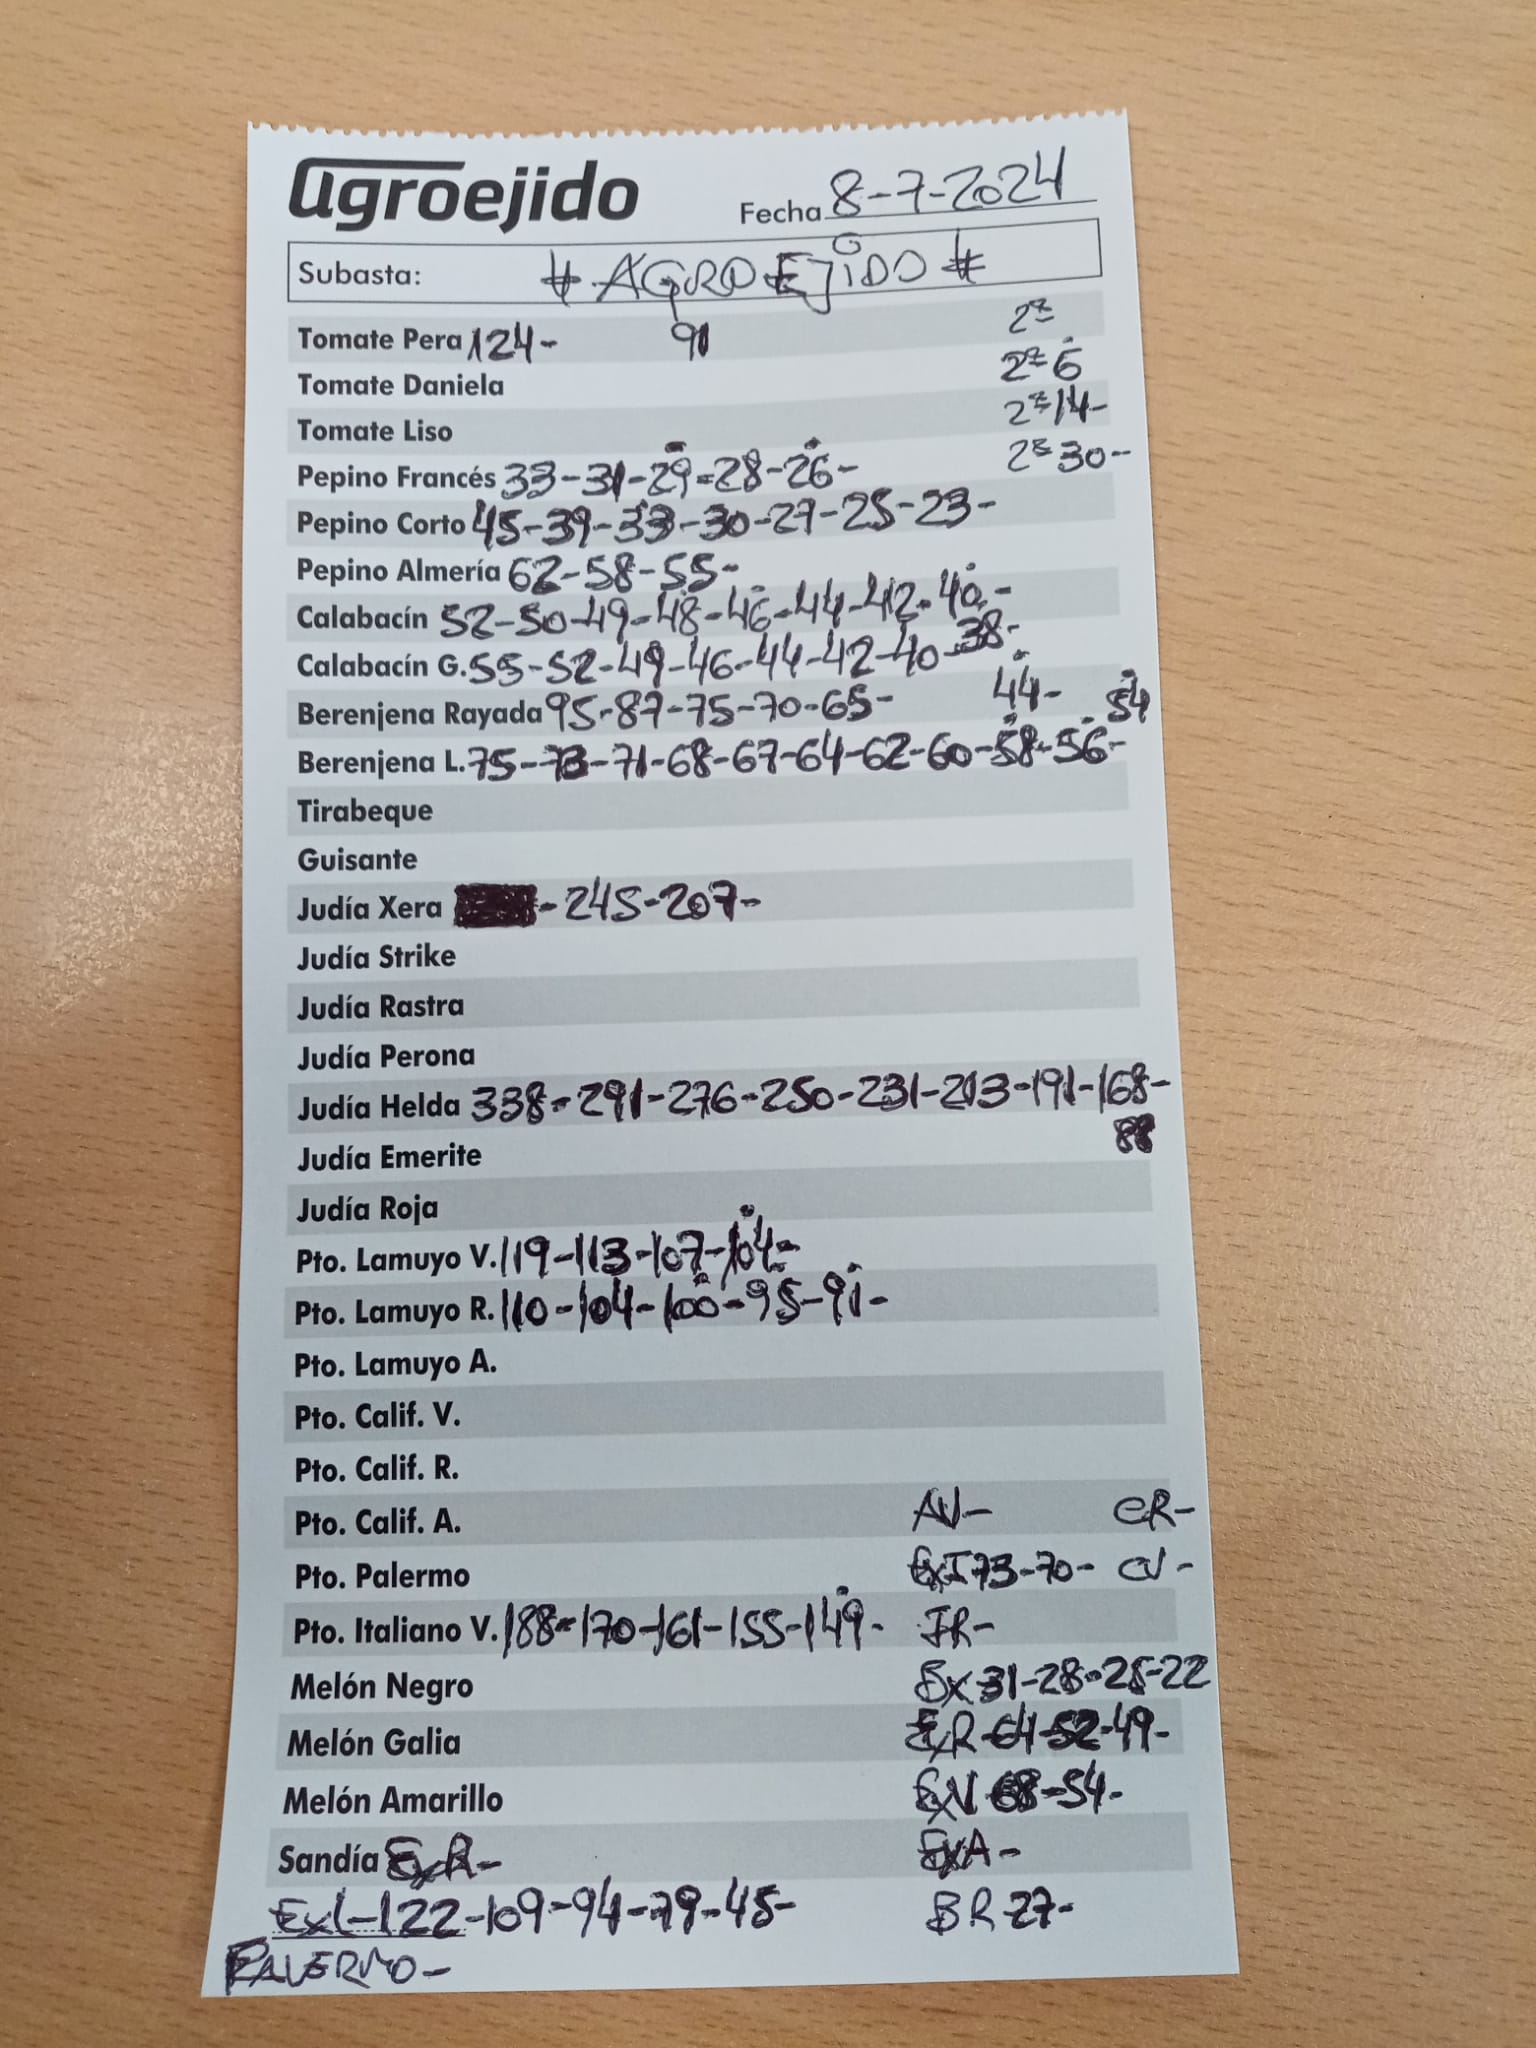 agroejido
Fecha 8-7-2024
Subasta: # AGROEJIDO #
Tomate Pera 124- 91 2ª
Tomate Daniela 2ª 6
Tomate Liso 2ª 14-
Pepino Francés 33-31-29-28-26- 2ª 30-
Pepino Corto 45-39-33-30-27-25-23-
Pepino Almería 62-58-55-
Calabacín 52-50-49-48-46-44-42-40.-
Calabacín G. 55-52-49-46-44-42-40-38-
Berenjena Rayada 95-87-75-70-65- 44- 54
Berenjena L. 75-73-71-68-67-64-62-60-58-56-
Tirabeque
Guisante
Judía Xera - 245-207-
Judía Strike
Judía Rastra
Judía Perona
Judía Helda 338-291-276-250-231-213-191-168-
88
Judía Emerite
Judía Roja
Pto. Lamuyo V. 119-113-107-104-
Pto. Lamuyo R. 110-104-100-95-91-
Pto. Lamuyo A.
Pto. Calif. V.
Pto. Calif. R.
Pto. Calif. A. AV- CR-
Pto. Palermo ExI 73-70- CV-
Pto. Italiano V. 188-170-161-155-149- IR-
Melón Negro Bx 31-28-25-22
Melón Galia ExR 64-52-49-
Melón Amarillo ExV 68-54-
Sandía ExR- ExA-
ExL-122-109-94-79-45- BR 27-
PALERMO-